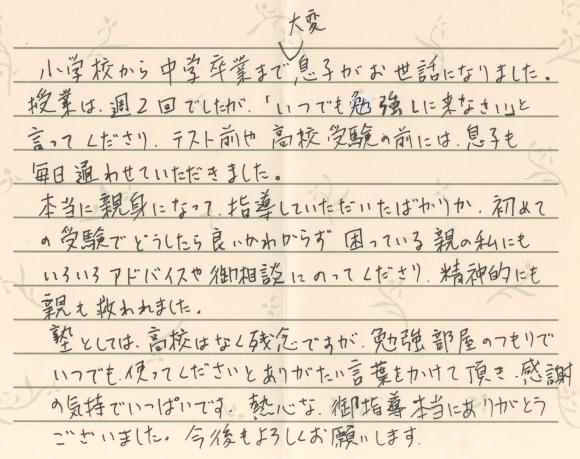 大変
小学校から中学卒業まで、息子がお世話になりました。
授業は、週2回でしたが、「いつでも勉強しに来なさい」と
言ってくださり、テスト前や高校受験の前には、息子も
毎日通わせていただきました。
本当に親身になって、指導していただいたばかりか、初めて
の受験でどうしたら良いかわからず困っている親の私にも
いろいろアドバイスや御相談にのってくださり、精神的にも
親も救われました。
塾としては、高校はなく残念ですが、勉強部屋のつもりで
いつでも、使ってくださいとありがたい言葉をかけて頂き、感謝
の気持でいっぱいです。熱心な、御指導本当にありがとう
ございました。今後もよろしくお願いします。